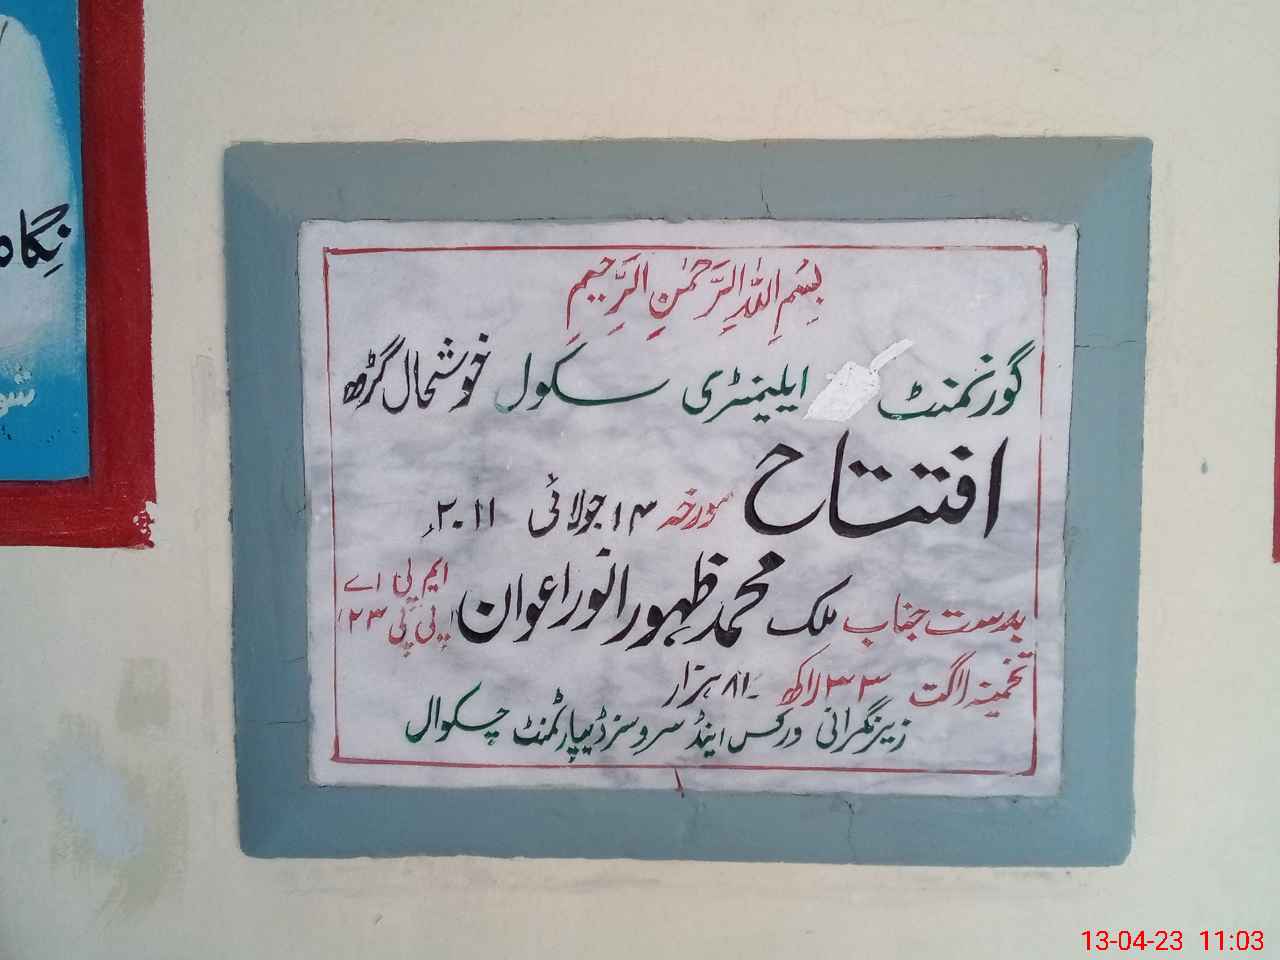 بِسْمِ اللّٰهِ الرَّحْمٰنِ الرَّحِيمِ
گورنمنٹ ایلیمنٹری سکول خوشحال گڑھ
افتتاح مورخہ ۱۴ جولائی ۲۰۱۱ء
بدست جناب ملک محمد ظہور انور اعوان ایم پی اے پی پی ۲۳
تخمینہ لاگت ۳۳ لاکھ ۸۱ ہزار
زیر نگرانی ورکس اینڈ سروسز ڈیپارٹمنٹ چکوال
نگاہ
13-04-23 11:03